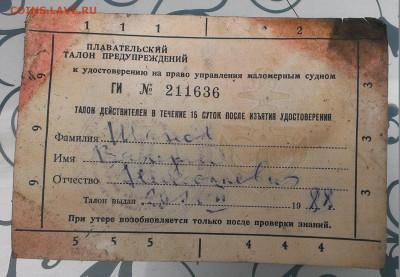 COINS.LAVY.RU
1 1 1 2
ПЛАВАТЕЛЬСКИЙ
ТАЛОН ПРЕДУПРЕЖДЕНИЙ
к удостоверению на право управления маломерным судном
ГИ № 211636
ТАЛОН ДЕЙСТВИТЕЛЕН В ТЕЧЕНИЕ 15 СУТОК ПОСЛЕ ИЗЪЯТИЯ УДОСТОВЕРЕНИЯ
Фамилия
Имя
Отчество Николаевич
Талон выдан 1988
При утере возобновляется только после проверки знаний.
5 5 5 4
9 9 9
3 3 3